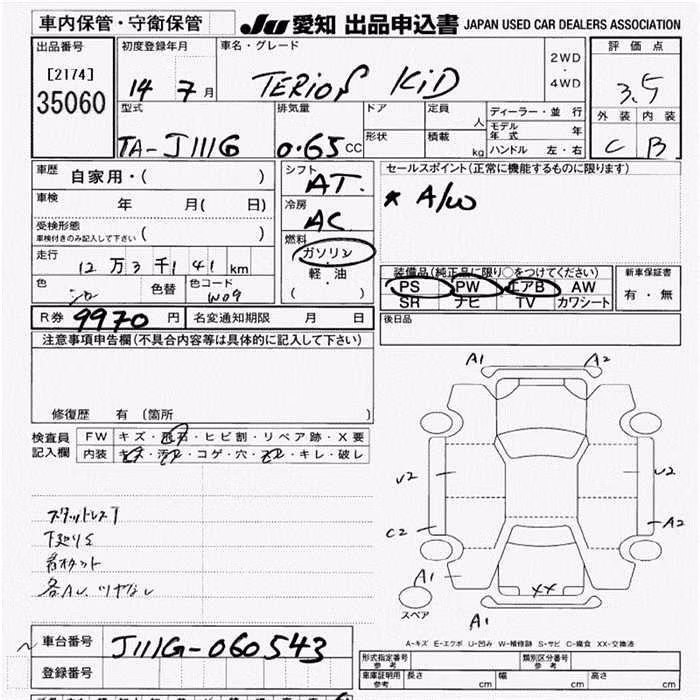 車内保管・守衛保管
JU 愛知 出品申込書 JAPAN USED CAR DEALERS ASSOCIATION
出品番号
[2174]
35060
初度登録年月
14 7月
車名・グレード
TERIOS KiD
2WD
・
4WD
評価点
3.5
外装 内装
C B
型式
TA-J111G
排気量
0.65 CC
ドア
形状
定員 人
積載 kg
ディーラー・並行
モデル年式 年
ハンドル 左・右
車歴
自家用・( )
車検 年 月( 日)
受検形態
車検付きのみ記入して下さい ( )
走行
12万3千141 km
色
シロ
色替
色コード
W09
シフト
AT.
冷房
AC
燃料
ガソリン
・
軽・油
( )
セールスポイント(正常に機能するものに限ります)
* A/W
装備品(純正品に限り○をつけてください)
PS PW エアB AW
SR ナビ TV カワシート
新車保証書
有・無
R券 9970 円 名変通知期限 月 日
後日品
注意事項申告欄(不具合内容等は具体的に記入して下さい)
修復歴 有 (箇所 )
検査員
記入欄
FW キズ・飛石・ヒビ割・リペア跡・X要
内装 キズ・汚れ・コゲ・穴・スレ・キレ・破レ
スタットレス
下廻りS
各AU、ツヤなし
A1 A2
U2 U2
C2 A2
A1
XX
A1
スペア
A-キズ E-エクボ U-凹み W-補修跡 S-サビ C-腐食 XX-交換済
車台番号 J111G-060543
登録番号
形式指定番号
参考
類別区分番号
参考
車庫証明用
参考
長さ cm 幅 cm 高さ cm